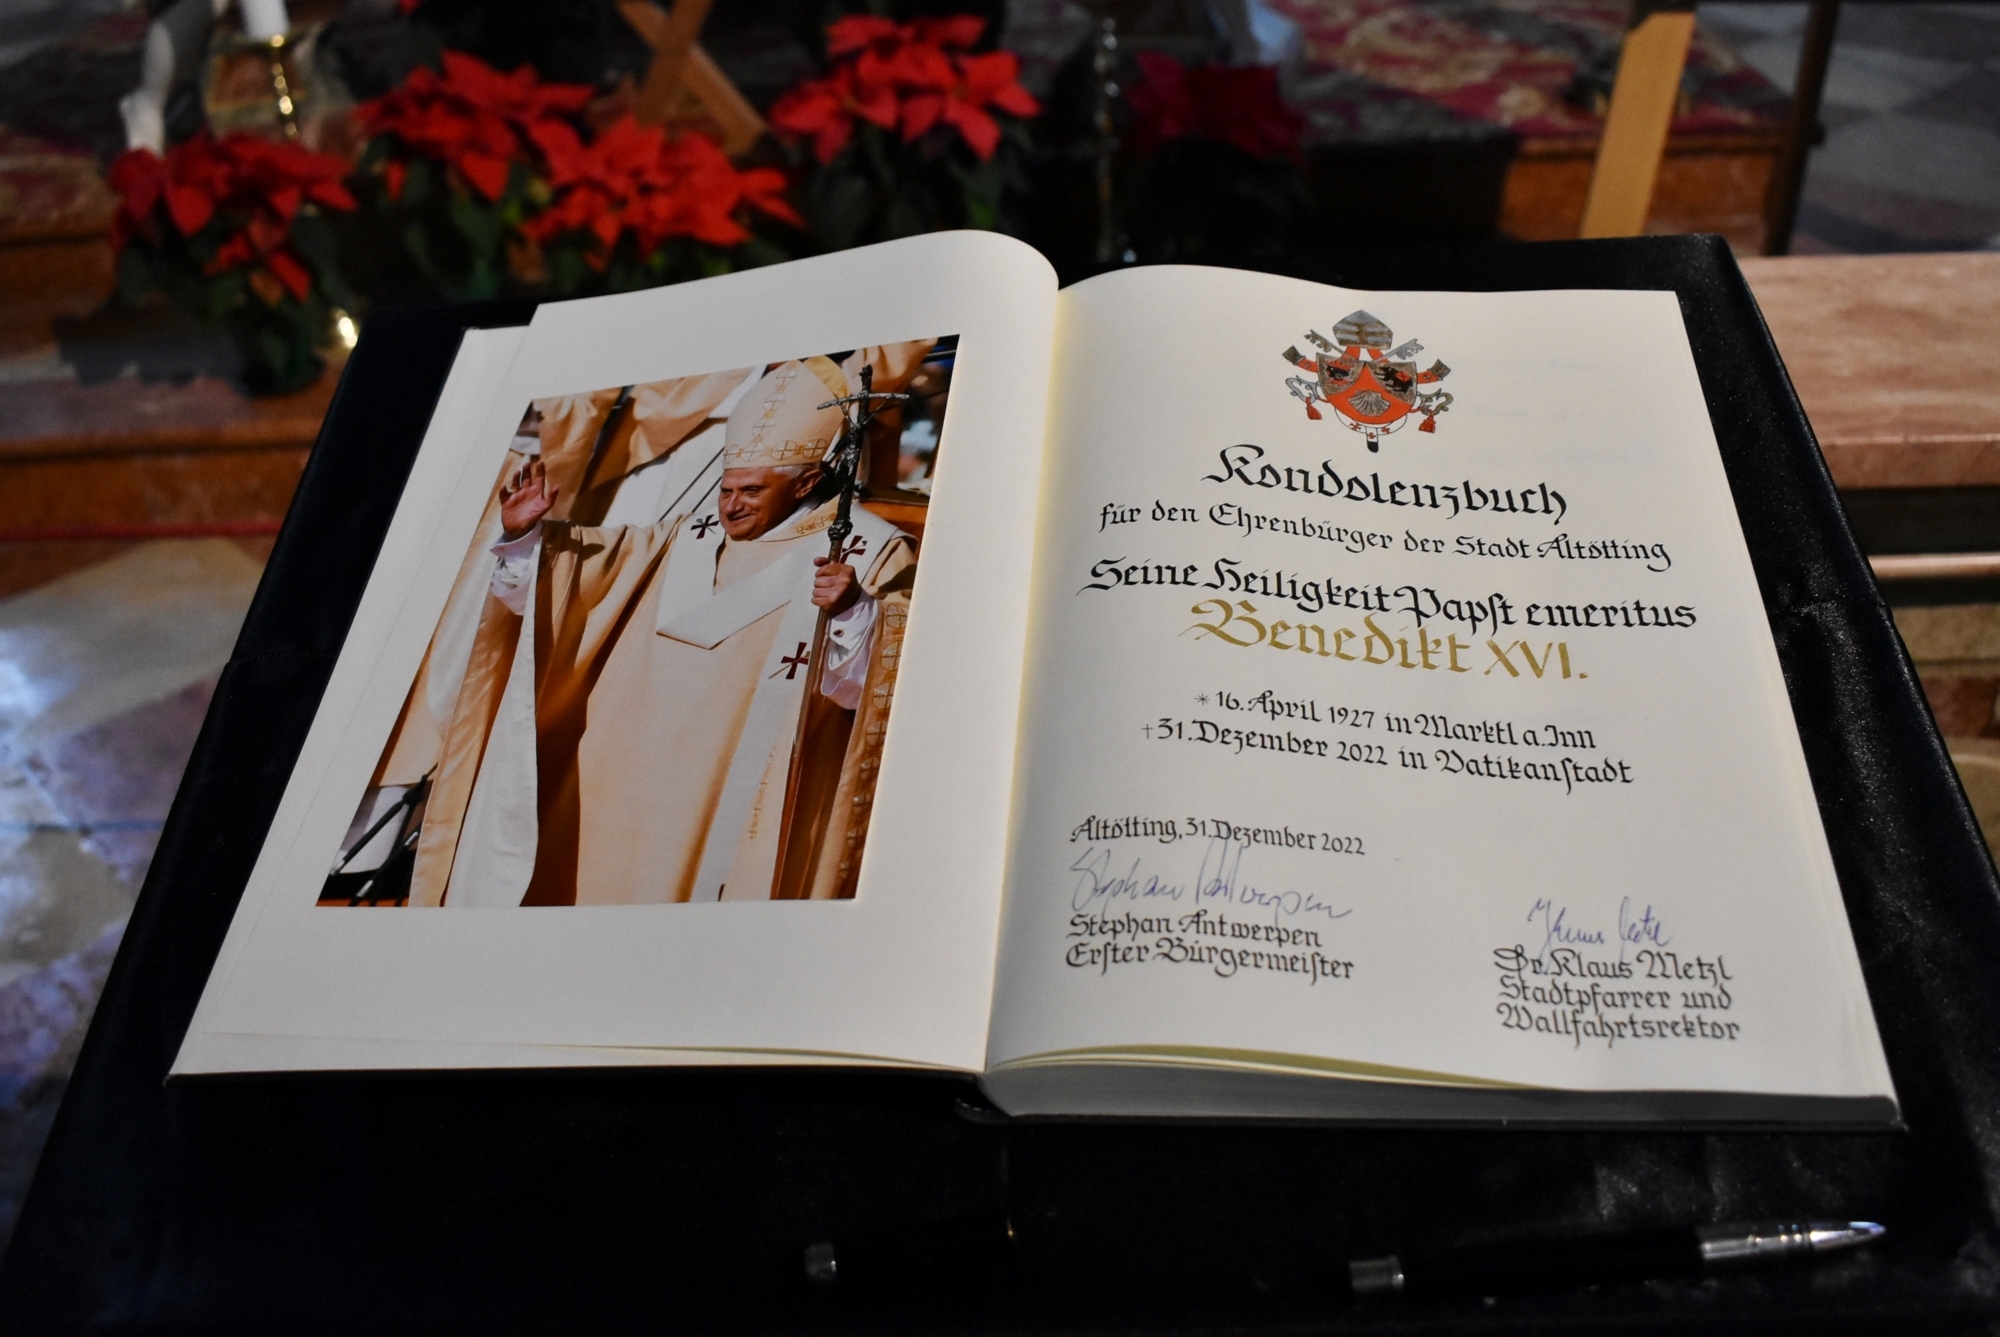 Kondolenzbuch
für den Ehrenbürger der Stadt Altötting
Seine Heiligkeit Papst emeritus
Benedikt XVI.
* 16. April 1927 in Marktl a. Inn
† 31. Dezember 2022 in Vatikanstadt
Altötting, 31. Dezember 2022
Stephan Antwerpen
Stephan Antwerpen
Erster Bürgermeister
Dr. Klaus Metzl
Stadtpfarrer und
Wallfahrtsrektor